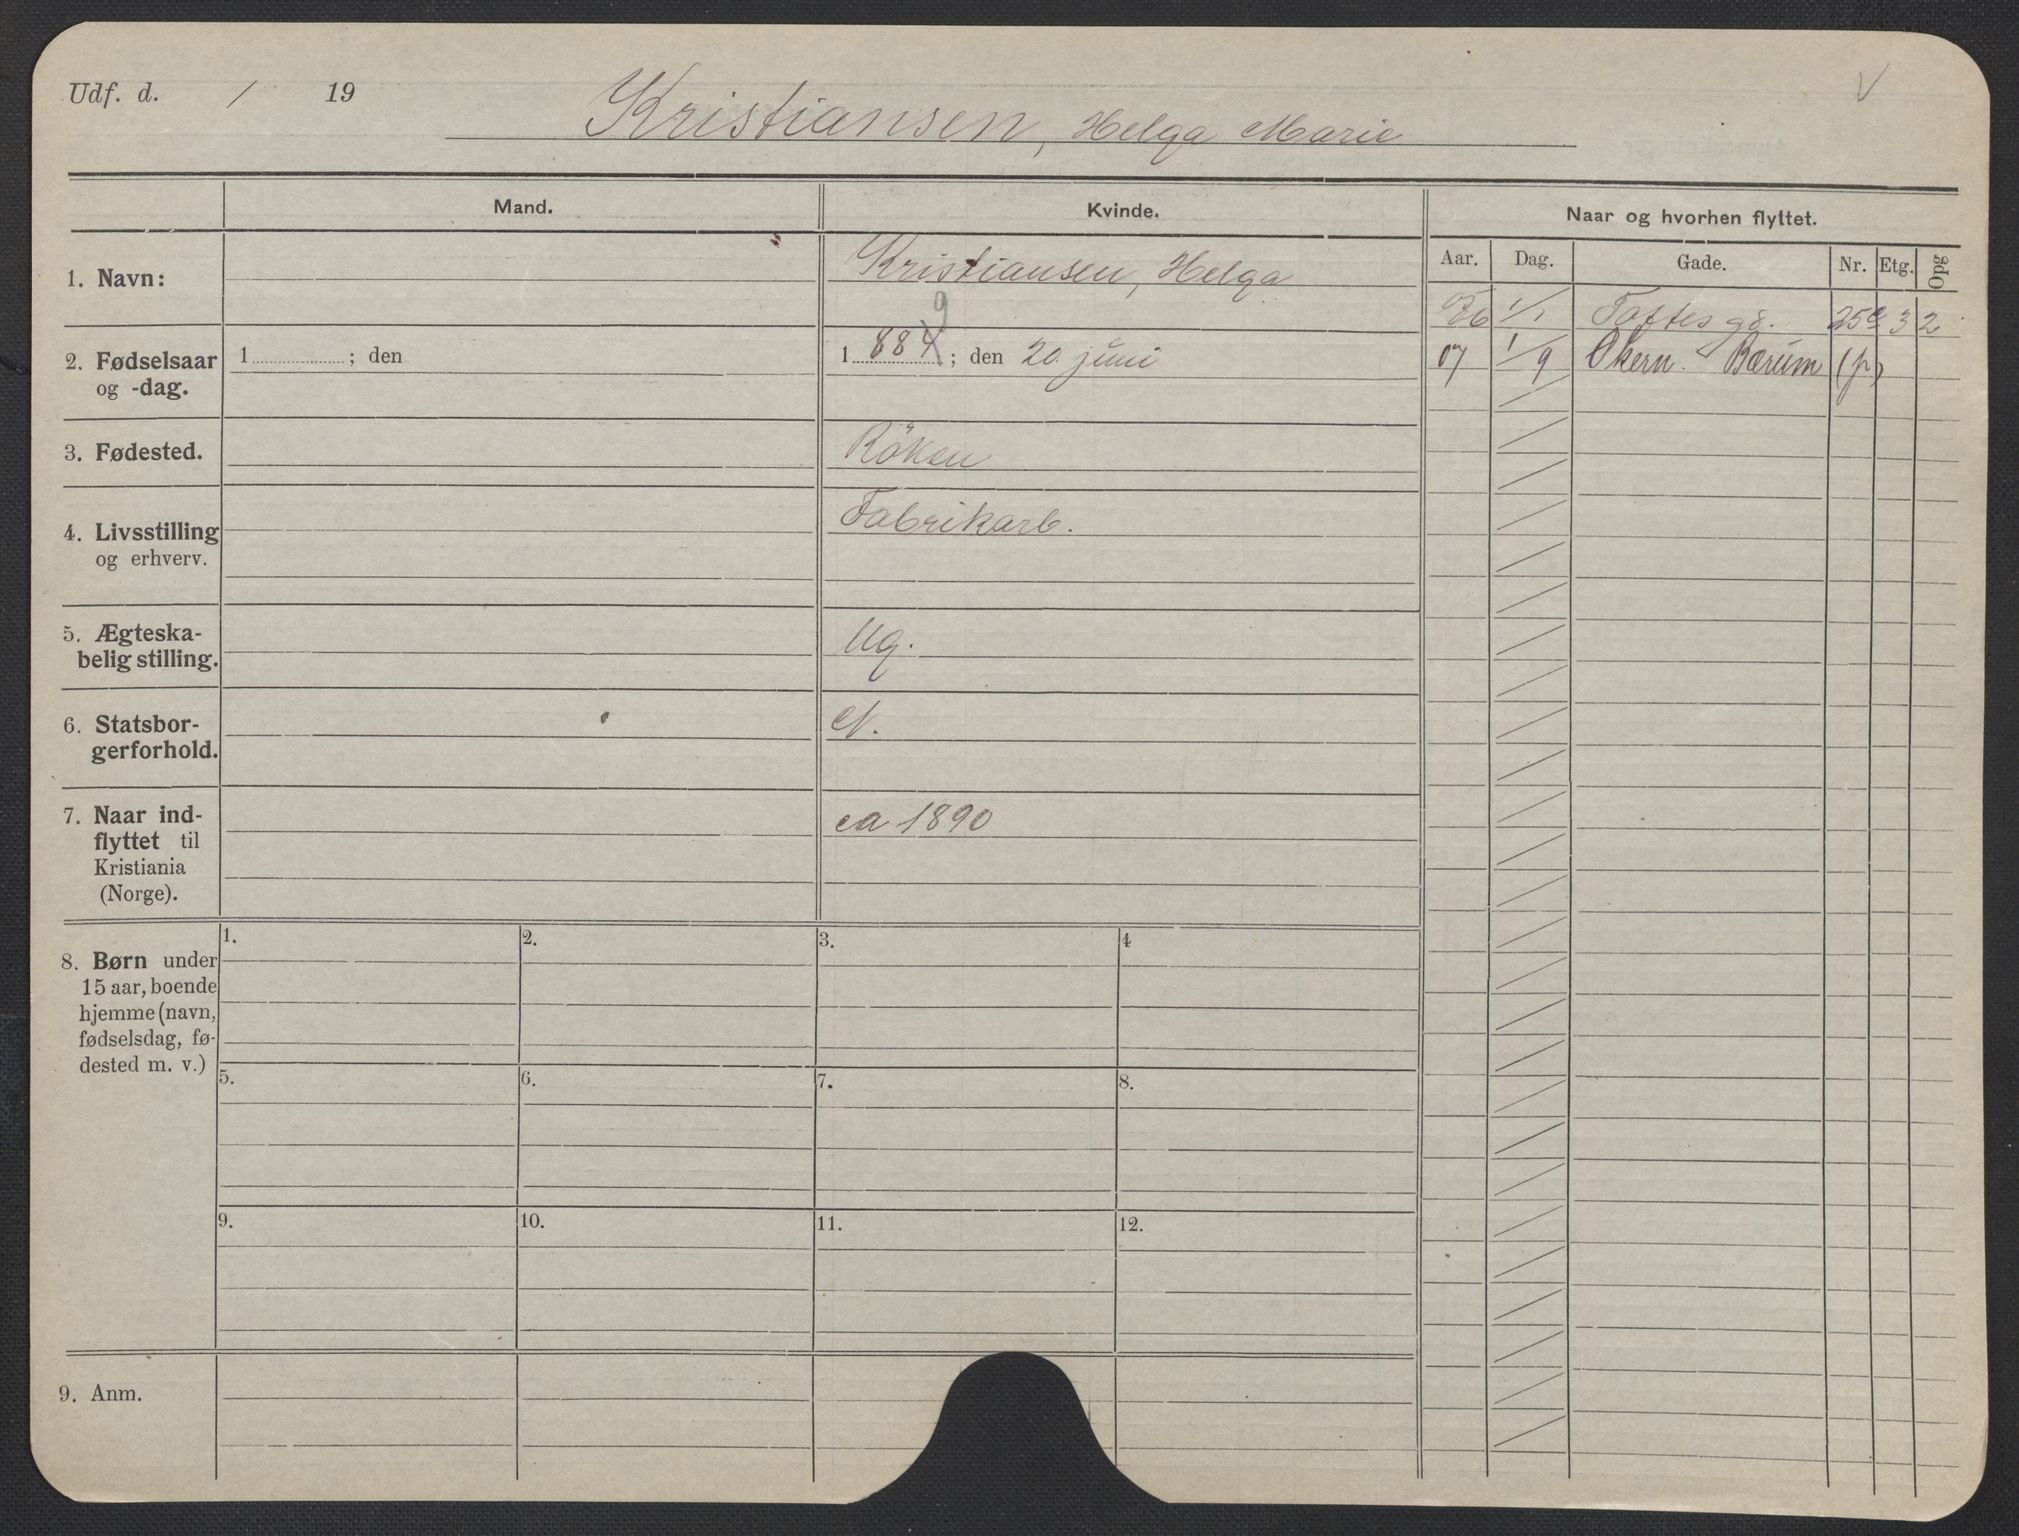 Udf. d. / 19
Kristiansen, Helga Marie
Mand.
Kvinde.
Naar og hvorhen flyttet.
Aar. Dag. Gade. Nr. Etg. Opg
1. Navn:
Kristiansen, Helga
06 1/1 Toftes gd. 25c 3 2
9
2. Fødselsaar
og -dag.
1 ; den
1 884 ; den 20. juni
07 1/9 Økern. Bærum (p)
3. Fødested.
Röken
4. Livsstilling
og erhverv.
Fabrikarb.
5. Ægteska-
belig stilling.
Ug.
6. Statsbor-
gerforhold.
N.
7. Naar ind-
flyttet til
Kristiania
(Norge).
ca 1890
8. Børn under
15 aar, boende
hjemme (navn,
fødselsdag, fø-
dested m. v.)
1. 2. 3. 4
5. 6. 7. 8.
9. 10. 11. 12.
9. Anm.